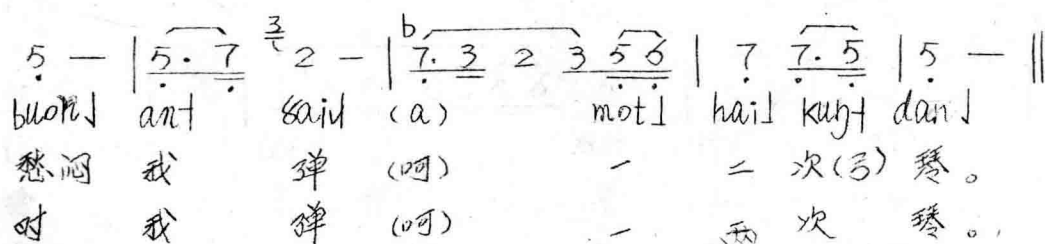 5 — | 5. 7 3 2 — | b7. 3 2 3 5 6 | 7 7. 5 | 5 — ‖
buon˩ an˧ (a) mot˩ hai˩ kuŋ˧ dan˩
愁闷 我 弹 (呵) 一 二 次(弓) 琴。
时 我 弹 (呵) 一 两 次 琴。